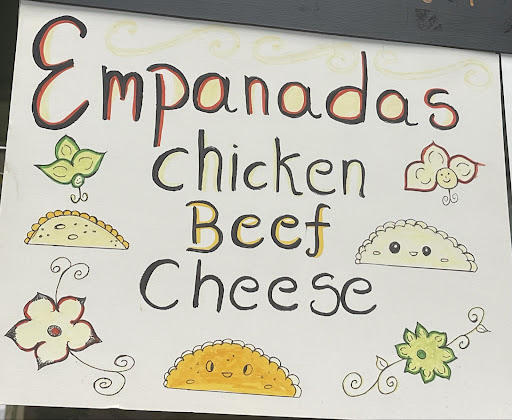 Empanadas
chicken
Beef
Cheese